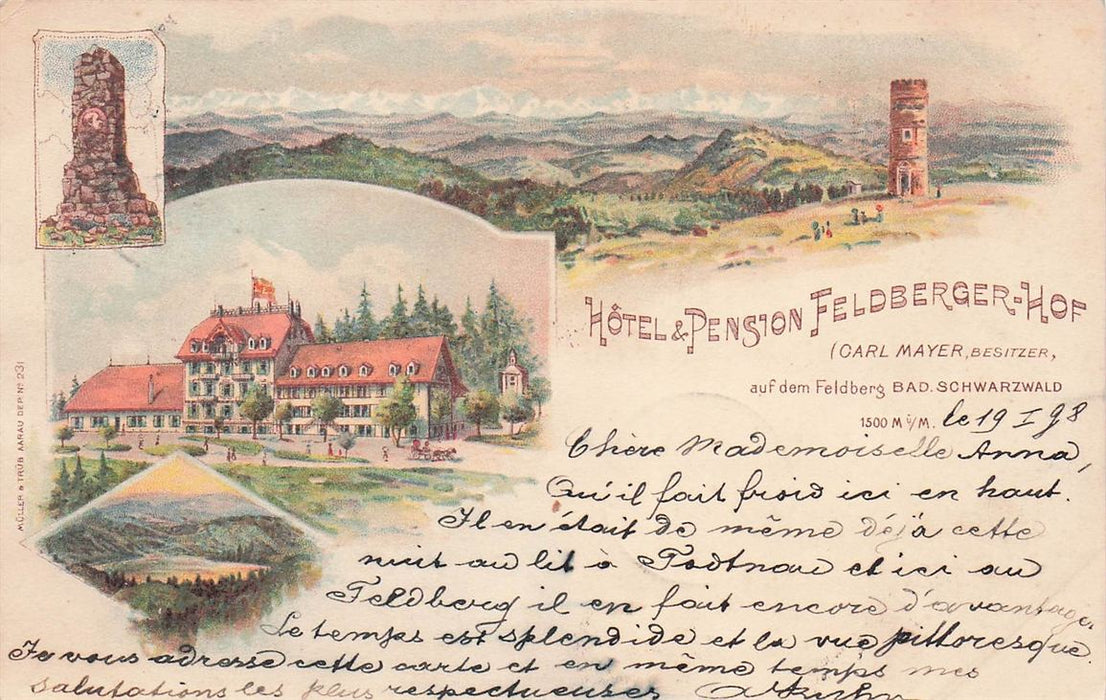 HÔTEL & PENSION FELDBERGER-HOF
(CARL MAYER, BESITZER,
auf dem Feldberg BAD. SCHWARZWALD
1500 M ü/M. le 19 I 98
Chère Mademoiselle Anna,
Qu'il fait froid ici en haut.
Il en était de même déjà cette
nuit au lit à Todtnau et ici au
Feldberg il en fait encore d'avantage.
Le temps est splendide et la vue pittoresque.
Je vous adresse cette carte et en même temps mes
salutations les plus respectueuses
MÜLLER & TRÜB AARAU DEP. No 231